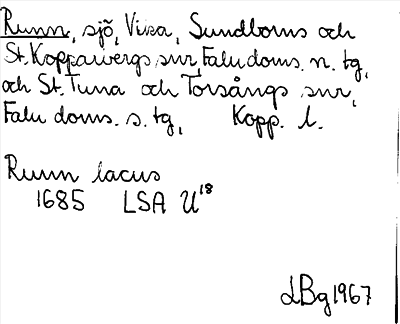 Runn, sjö, Vika, Sundborns och
St. Kopparbergs snr, Falu doms. n. tg,
och St. Tuna och Torsångs snr,
Falu doms. s. tg, Kopp. l.
Runn lacus
1685 LSA U18
LBg1967